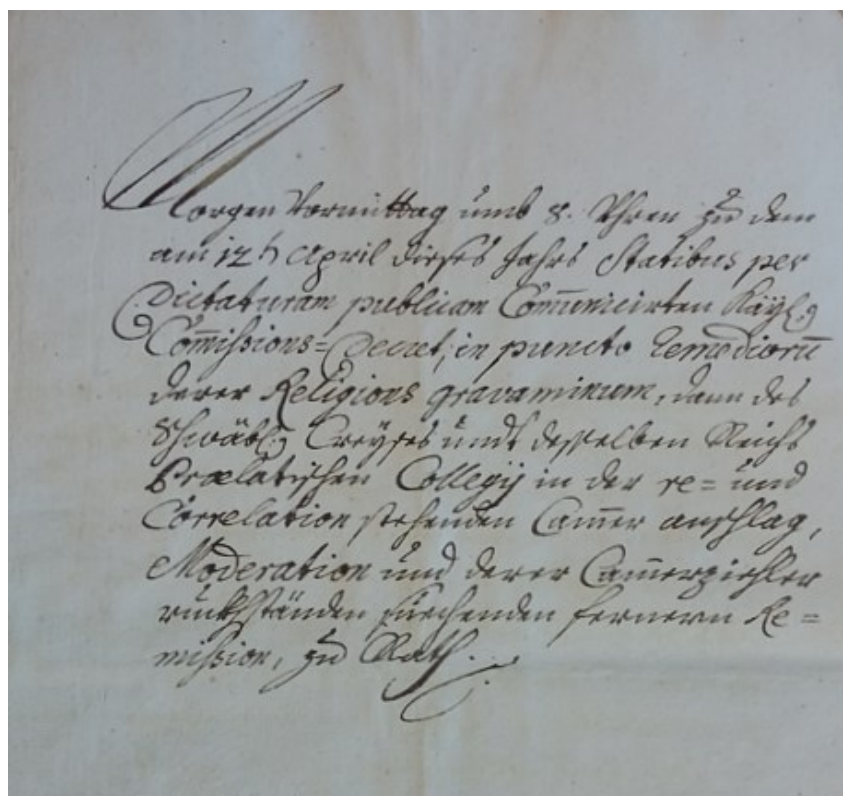 Morgen Vormittag umb 8. Uhren zu dem
am 12.t April dieses Jahrs Statibus per
Dictaturam publicam Com̅unicirten Kayl.
Com̅issions=Decret, in puncto Remediorum̅
derer Religions gravaminum, dann des
Schwäbl. Creyses undt desselben Reichs
Prælatischen Collegij in der re= und
Correlation stehenden Cam̅er anschlag,
Moderation und derer Cam̅erziehler
rückständen suchenden fernern Re=
mission, zu Rath.